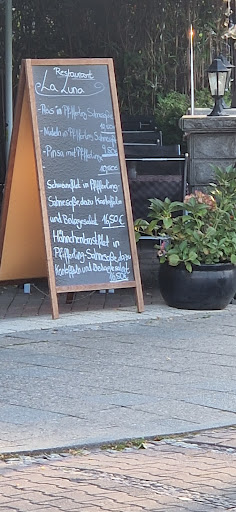 Restaurant
La Luna
-Reis in Pfifferling Sahnesoße
10,50€
-Nudeln in Pfifferling Sahnesoße
9,50€
-Pinsa mit Pfifferling
10,50€
Schweinefilet in Pfifferling
Sahnesoße, dazu Kroketten
und Beilagesalat 16,50€
Hähnchenbrustfilet in
Pfifferling-Sahnesoße, dazu
Kroketten und Beilagesalat